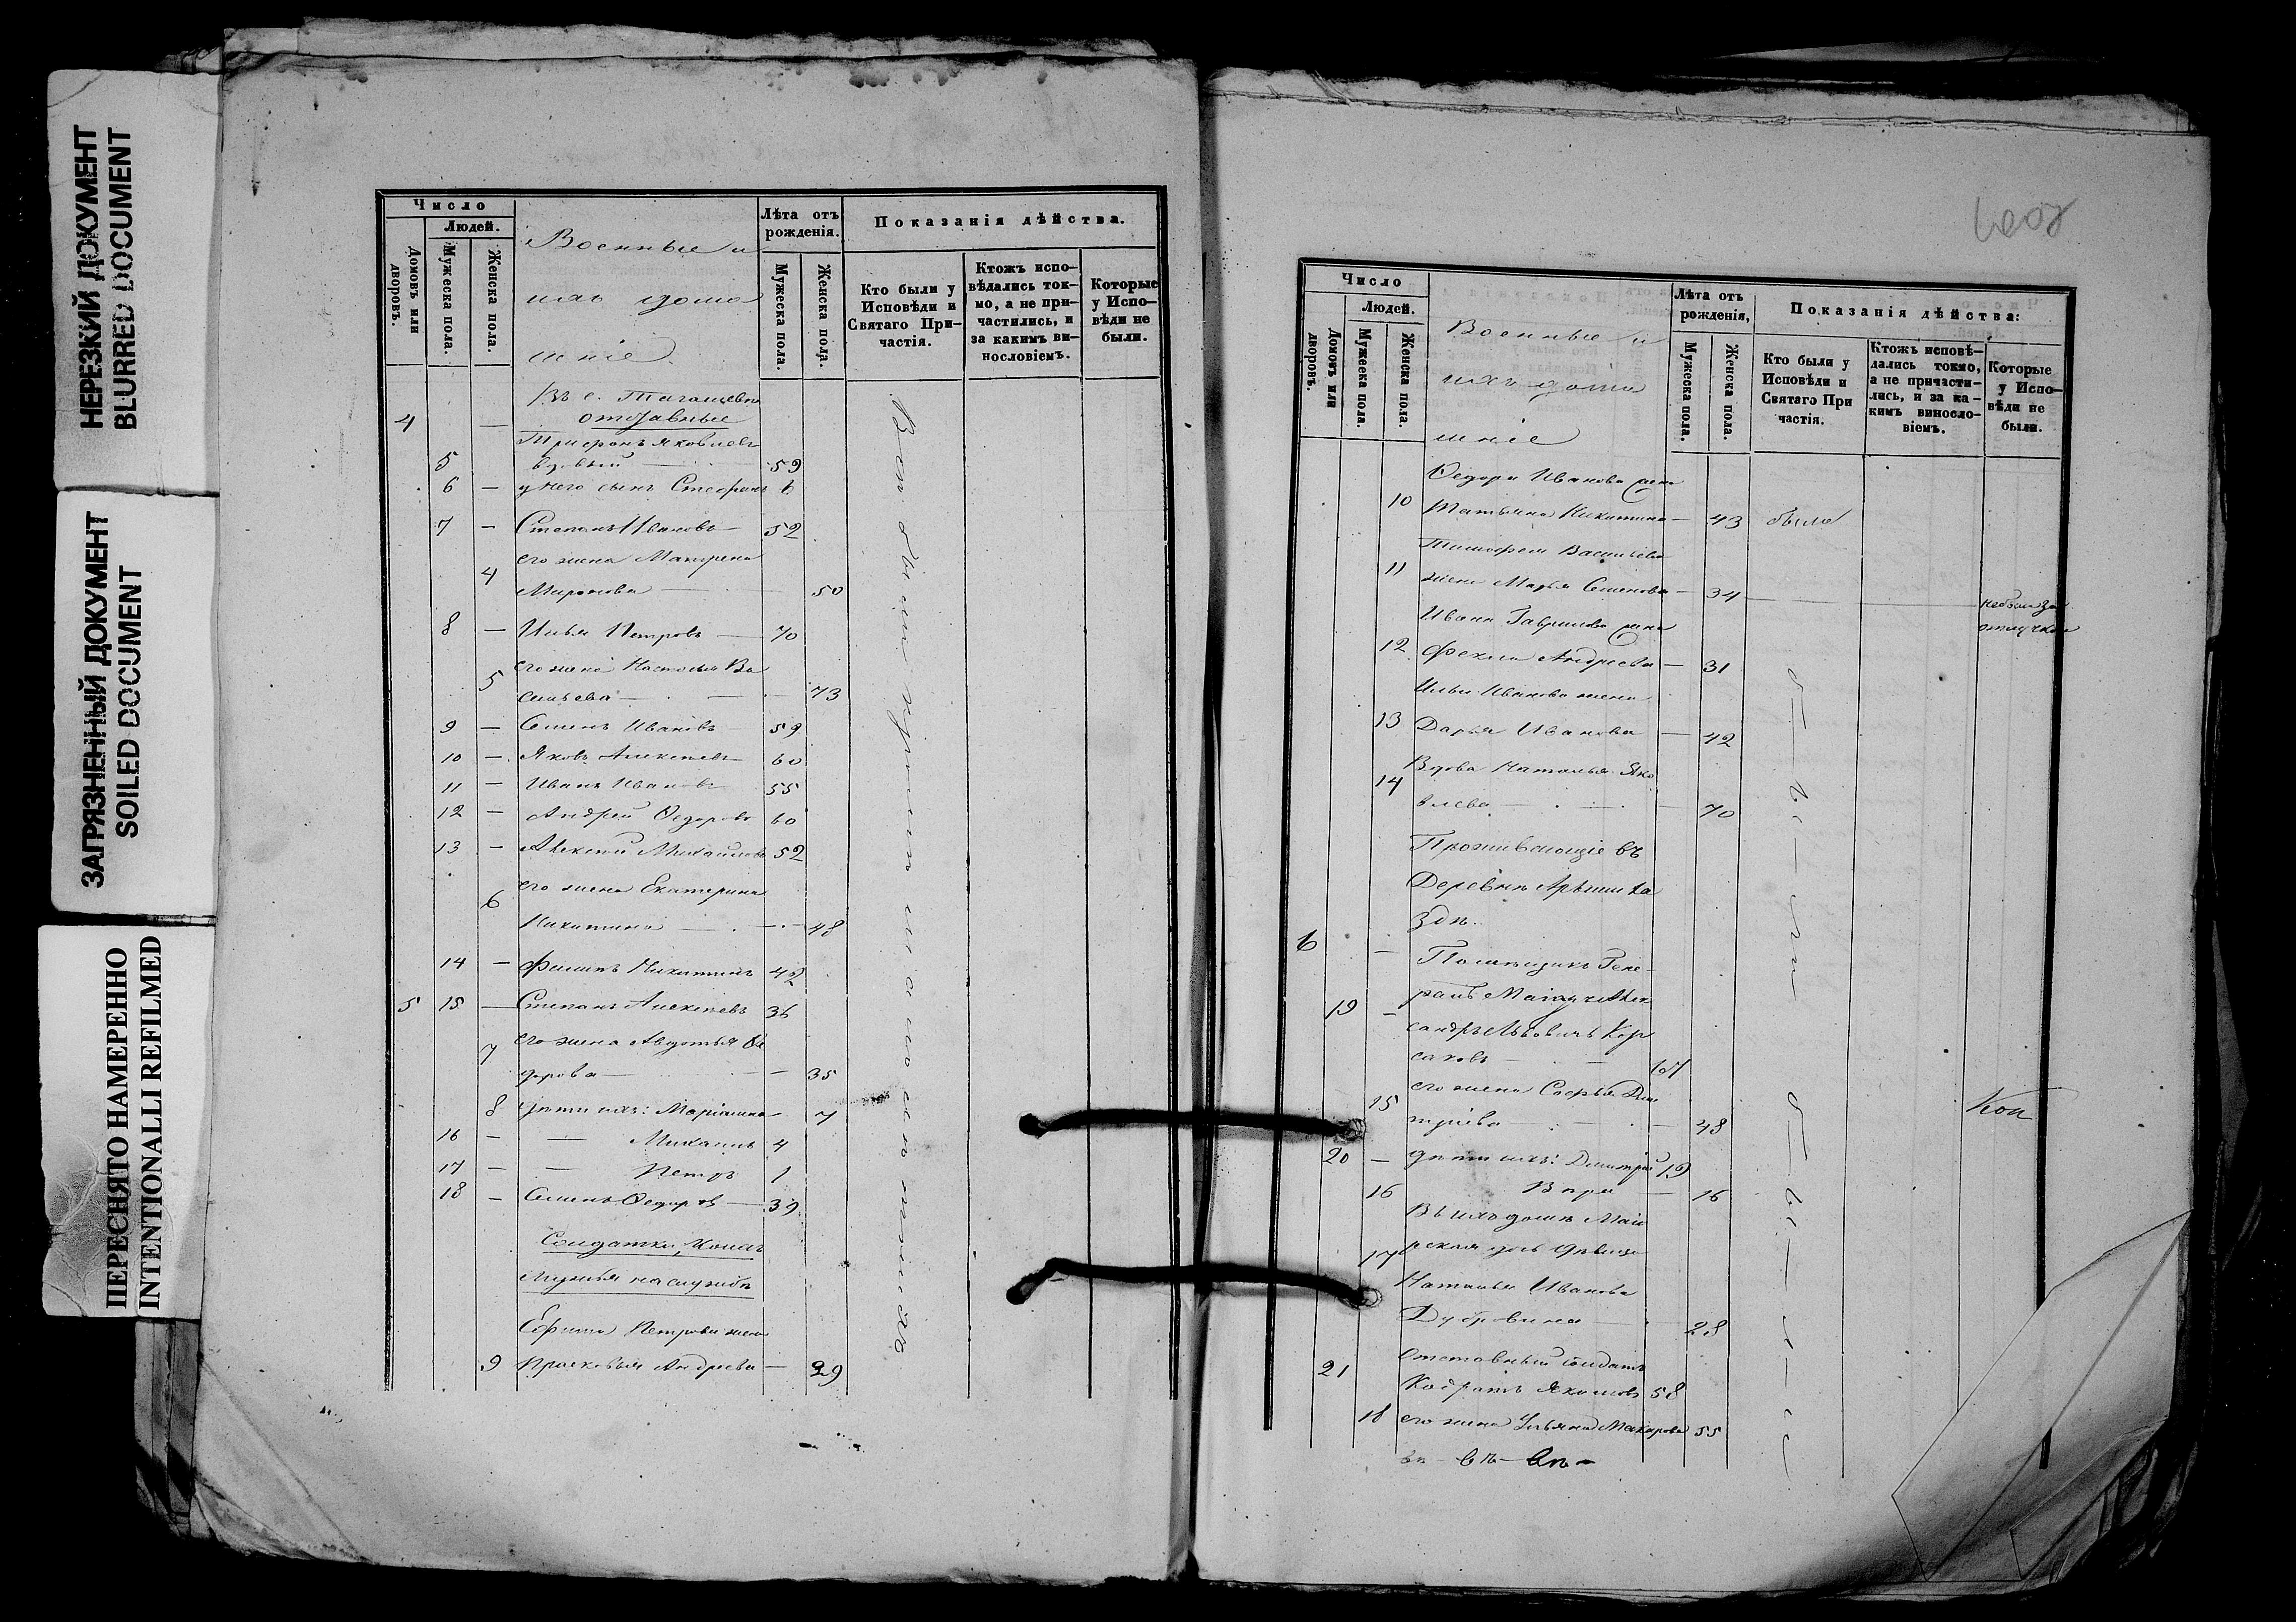 НЕРЕЗКИЙ ДОКУМЕНТ
BLURRED DOCUMENT
ЗАГРЯЗНЕННЫЙ ДОКУМЕНТ
SOILED DOCUMENT
ПЕРЕСНЯТО НАМЕРЕННО
INTENTIONALLI REFILMED
Число
Людей.
Домовъ или дворовъ.
Мужеска пола.
Женска пола.
Военные и
ихъ дома
шніе
Лѣта отъ рожденія.
Мужеска пола.
Женска пола.
Показанія дѣйства.
Кто были у Исповѣди и Святаго При-частія.
Ктожъ испо-вѣдались ток-мо, а не при-частились, и за какимъ ви-нословіемъ.
Которые у Испо-вѣди не были.
Въ с.
4 — отставные
Трифонъ Яковлевъ
5 вдовый — 59
6 — у него сынъ Стефанъ 6
7 — Степанъ Ивановъ — 52
его жена Матрена
4 Миронова — 50
8 — Илья Петровъ — 70
его жена Наталья Ва
5 сильева — 73
9 — Семенъ Ивановъ 59
10 — Яковъ Алексѣевъ 60
11 — Иванъ Ивановъ 55
12 — Андрей Ѳедоровъ 60
13 — Алексѣй Михайловъ 52
его жена Екатерина
6 Никитина — 48
14 — Филипъ Никитинъ 42
5 15 — Степанъ Алексѣевъ 36
его жена Авдотья Ѳе
7 дорова — 35
8 дѣти ихъ: Маріамна 7
16 — — Михаилъ 4
17 — — Петръ 1
18 — Семенъ Ѳедоровъ — 39
Солдатки, коихъ
мужья на службѣ
Ефима Петрова жена
9 Прасковья Андреева — 29
Число
Людей.
Домовъ или дворовъ.
Мужеска пола.
Женска пола.
Военные и
ихъ дома
шніе
Лѣта отъ рожденія,
Мужеска пола.
Женска пола.
Показанія дѣйства:
Кто были у Исповѣди и Святаго При частія.
Ктожъ исповѣ-дались токмо, а не причасти-лись, и за ка-кимъ виносло-віемъ.
Которые у Испо-вѣди не были.
Ѳедора Иванова жена
10 Татьяна Никитина — 43 была
Тимофея Васильева
11 жена Марья Семенова — 34 — небыла за
Ивана Гаврилова жена отлучкою
12 Фекла Андреева — 31
Ильи Иванова жена
13 Дарья Иванова — 42
Вдова Наталья Яко
14 влева — 70
Проживающіе въ
Деревнѣ
6 — Помѣщикъ Гене-
19 — ралъ Маіоръ Алек
сандръ Львовичъ Кор
саковъ — 67
его жена Софья Дми
15 тріева — 48
20 — дѣти ихъ: Димитрій 19
16 Вѣра — 16
Въ ихъ домѣ Маіо
17 рская дочь дѣвица
Наталья Иванова
Дубровина — 28
21 Отставный солдатъ
Кодратъ Якимовъ 58
18 его жена Ульяна Макарова 55